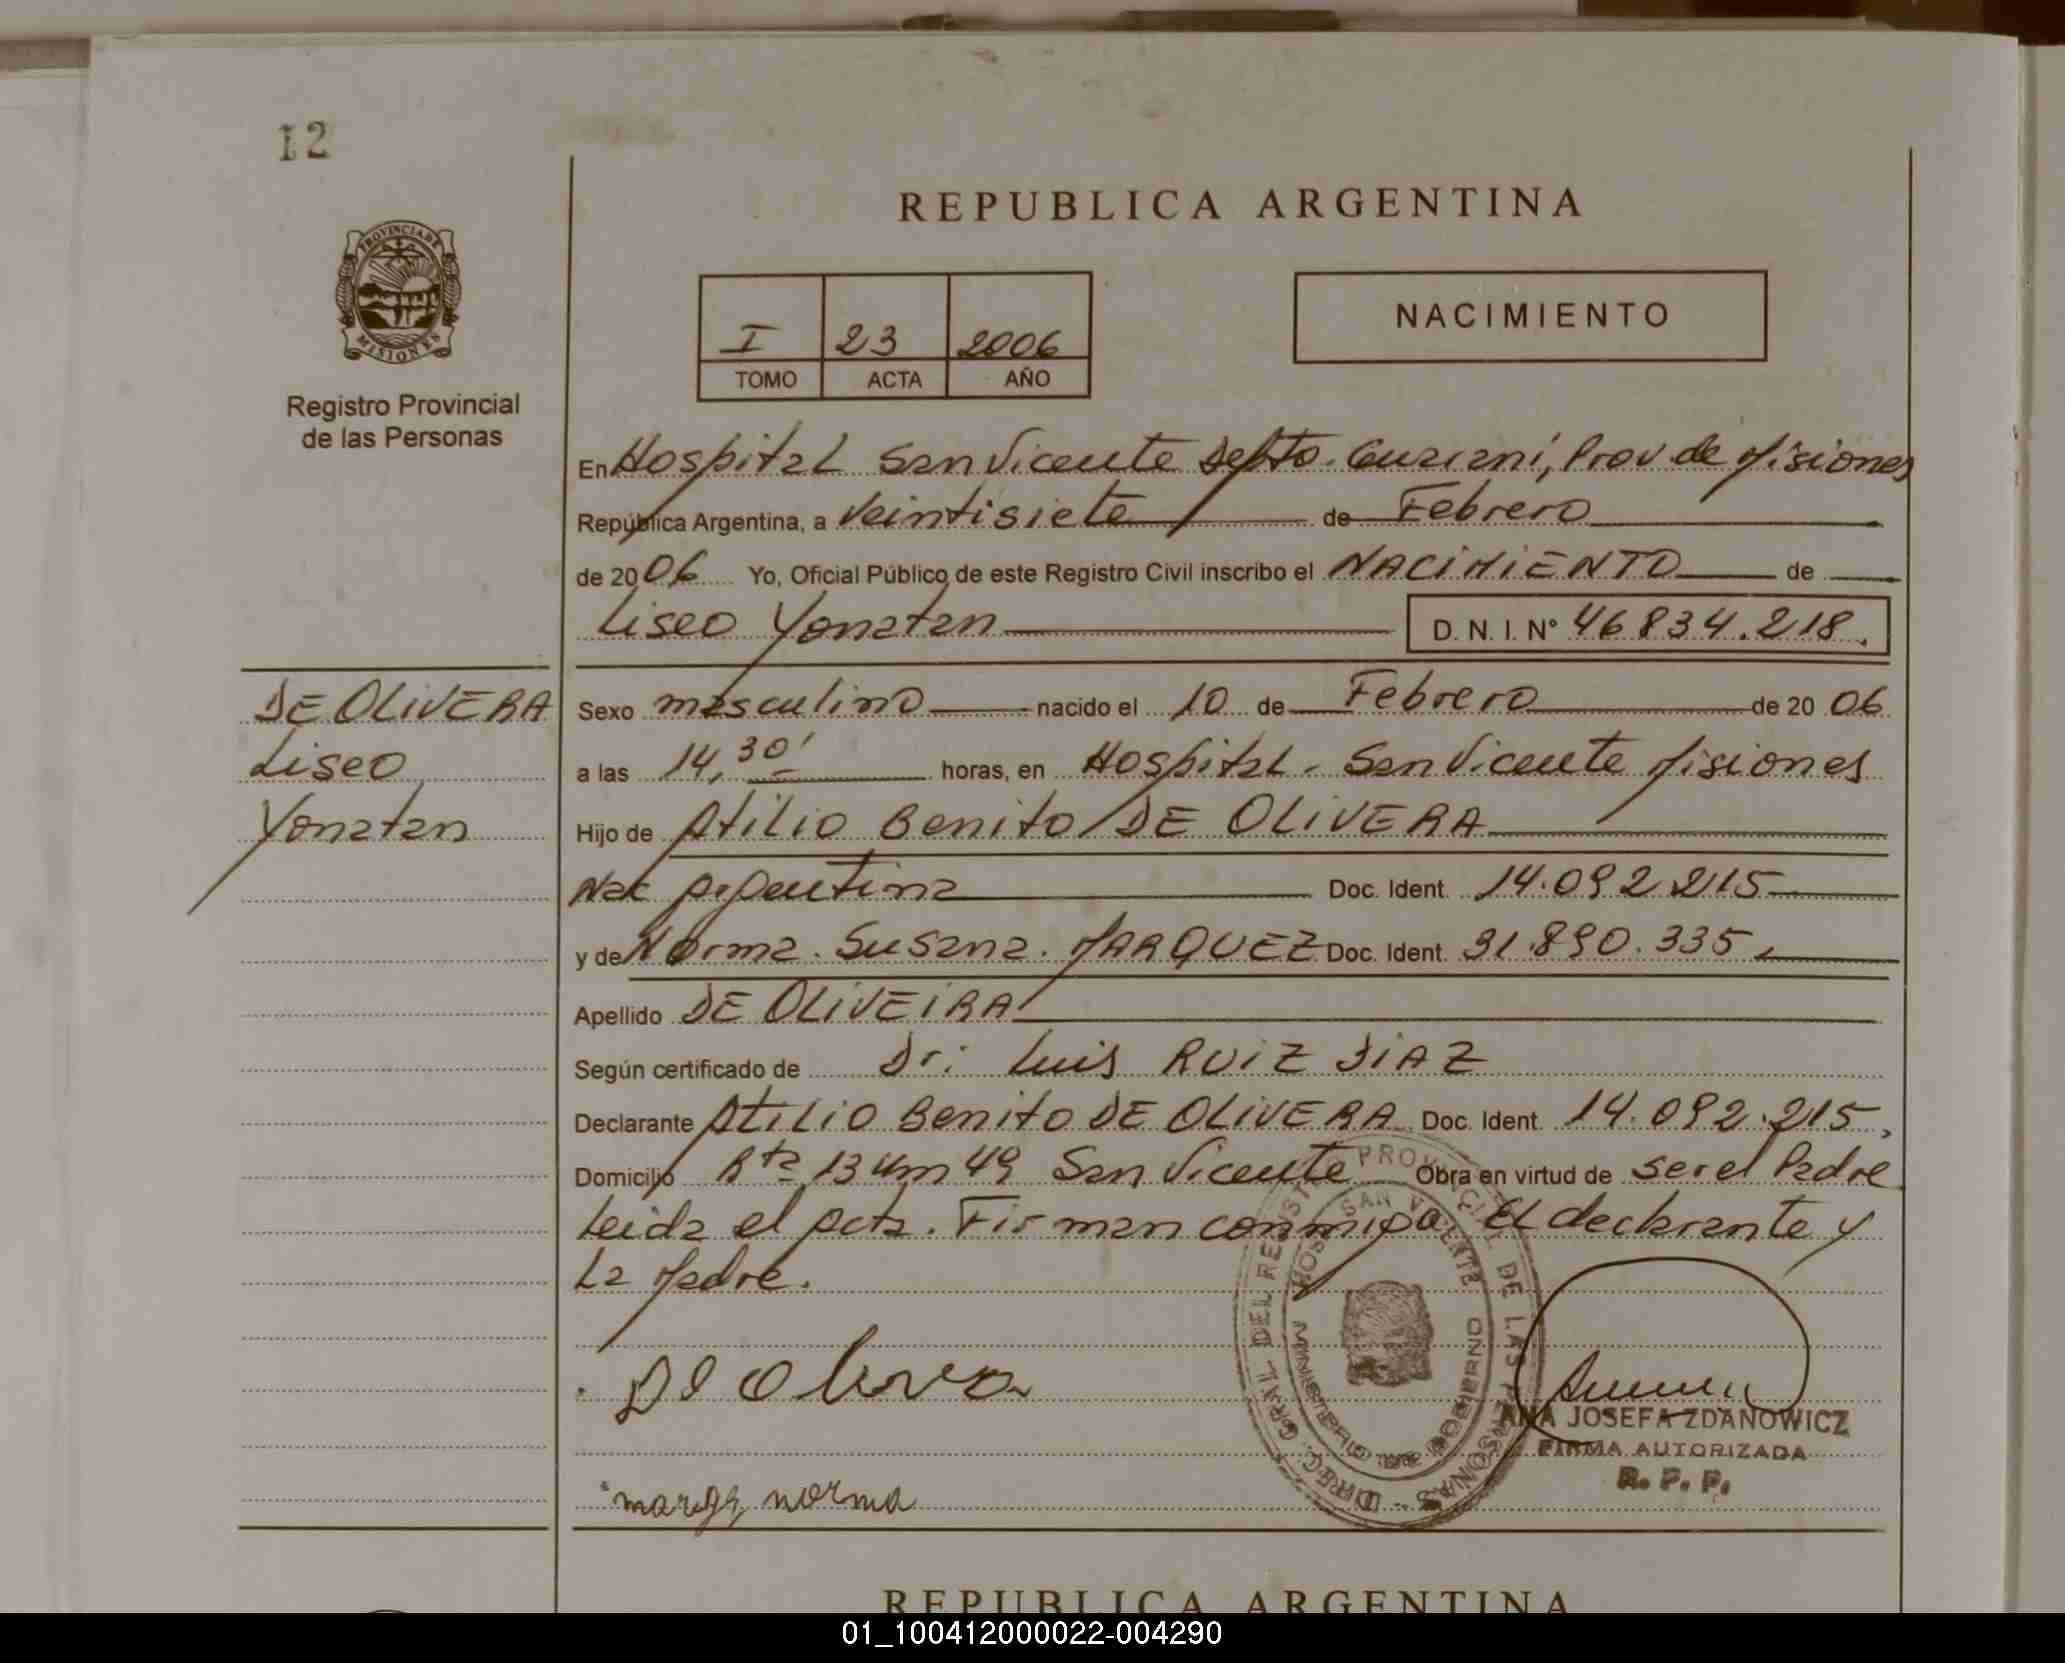 12
REPUBLICA ARGENTINA
PROVINCIA DE
MISIONES
Registro Provincial
de las Personas
I 23 2006
TOMO ACTA AÑO
NACIMIENTO
En Hospital San Vicente Depto. Guaraní, Prov de Misiones
República Argentina, a Veintisiete de Febrero
de 2006 Yo, Oficial Público de este Registro Civil inscribo el NACIMIENTO de
Liseo Yonatan D. N. I. N° 46834.218.
DE OLIVERA
Liseo
Yonatan
Sexo masculino nacido el 10 de Febrero de 2006
a las 14,30' horas, en Hospital. San Vicente Misiones
Hijo de Atilio Benito DE OLIVERA
Nac Argentina Doc. Ident. 14.092.215
y de Norma. Susana. MARQUEZ Doc. Ident. 31.890.335
Apellido DE OLIVEIRA
Según certificado de Dr: Luis RUIZ DIAZ
Declarante Atilio Benito DE OLIVERA Doc. Ident. 14.092.215,
Domicilio Rta 13 Km 49 San Vicente Obra en virtud de ser el Padre
Leida el Acta. Firman conmigo El declarante y
La Madre.
DIREC. GRAL. DEL REGISTRO PROVINCIAL DE LAS PERSONAS
HOSP. SAN VICENTE
MINISTERIO DE GOBIERNO
De Olivera
ANA JOSEFA ZDANOWICZ
FIRMA AUTORIZADA
R. P. P.
norma
REPUBLICA ARGENTINA
01_100412000022-004290